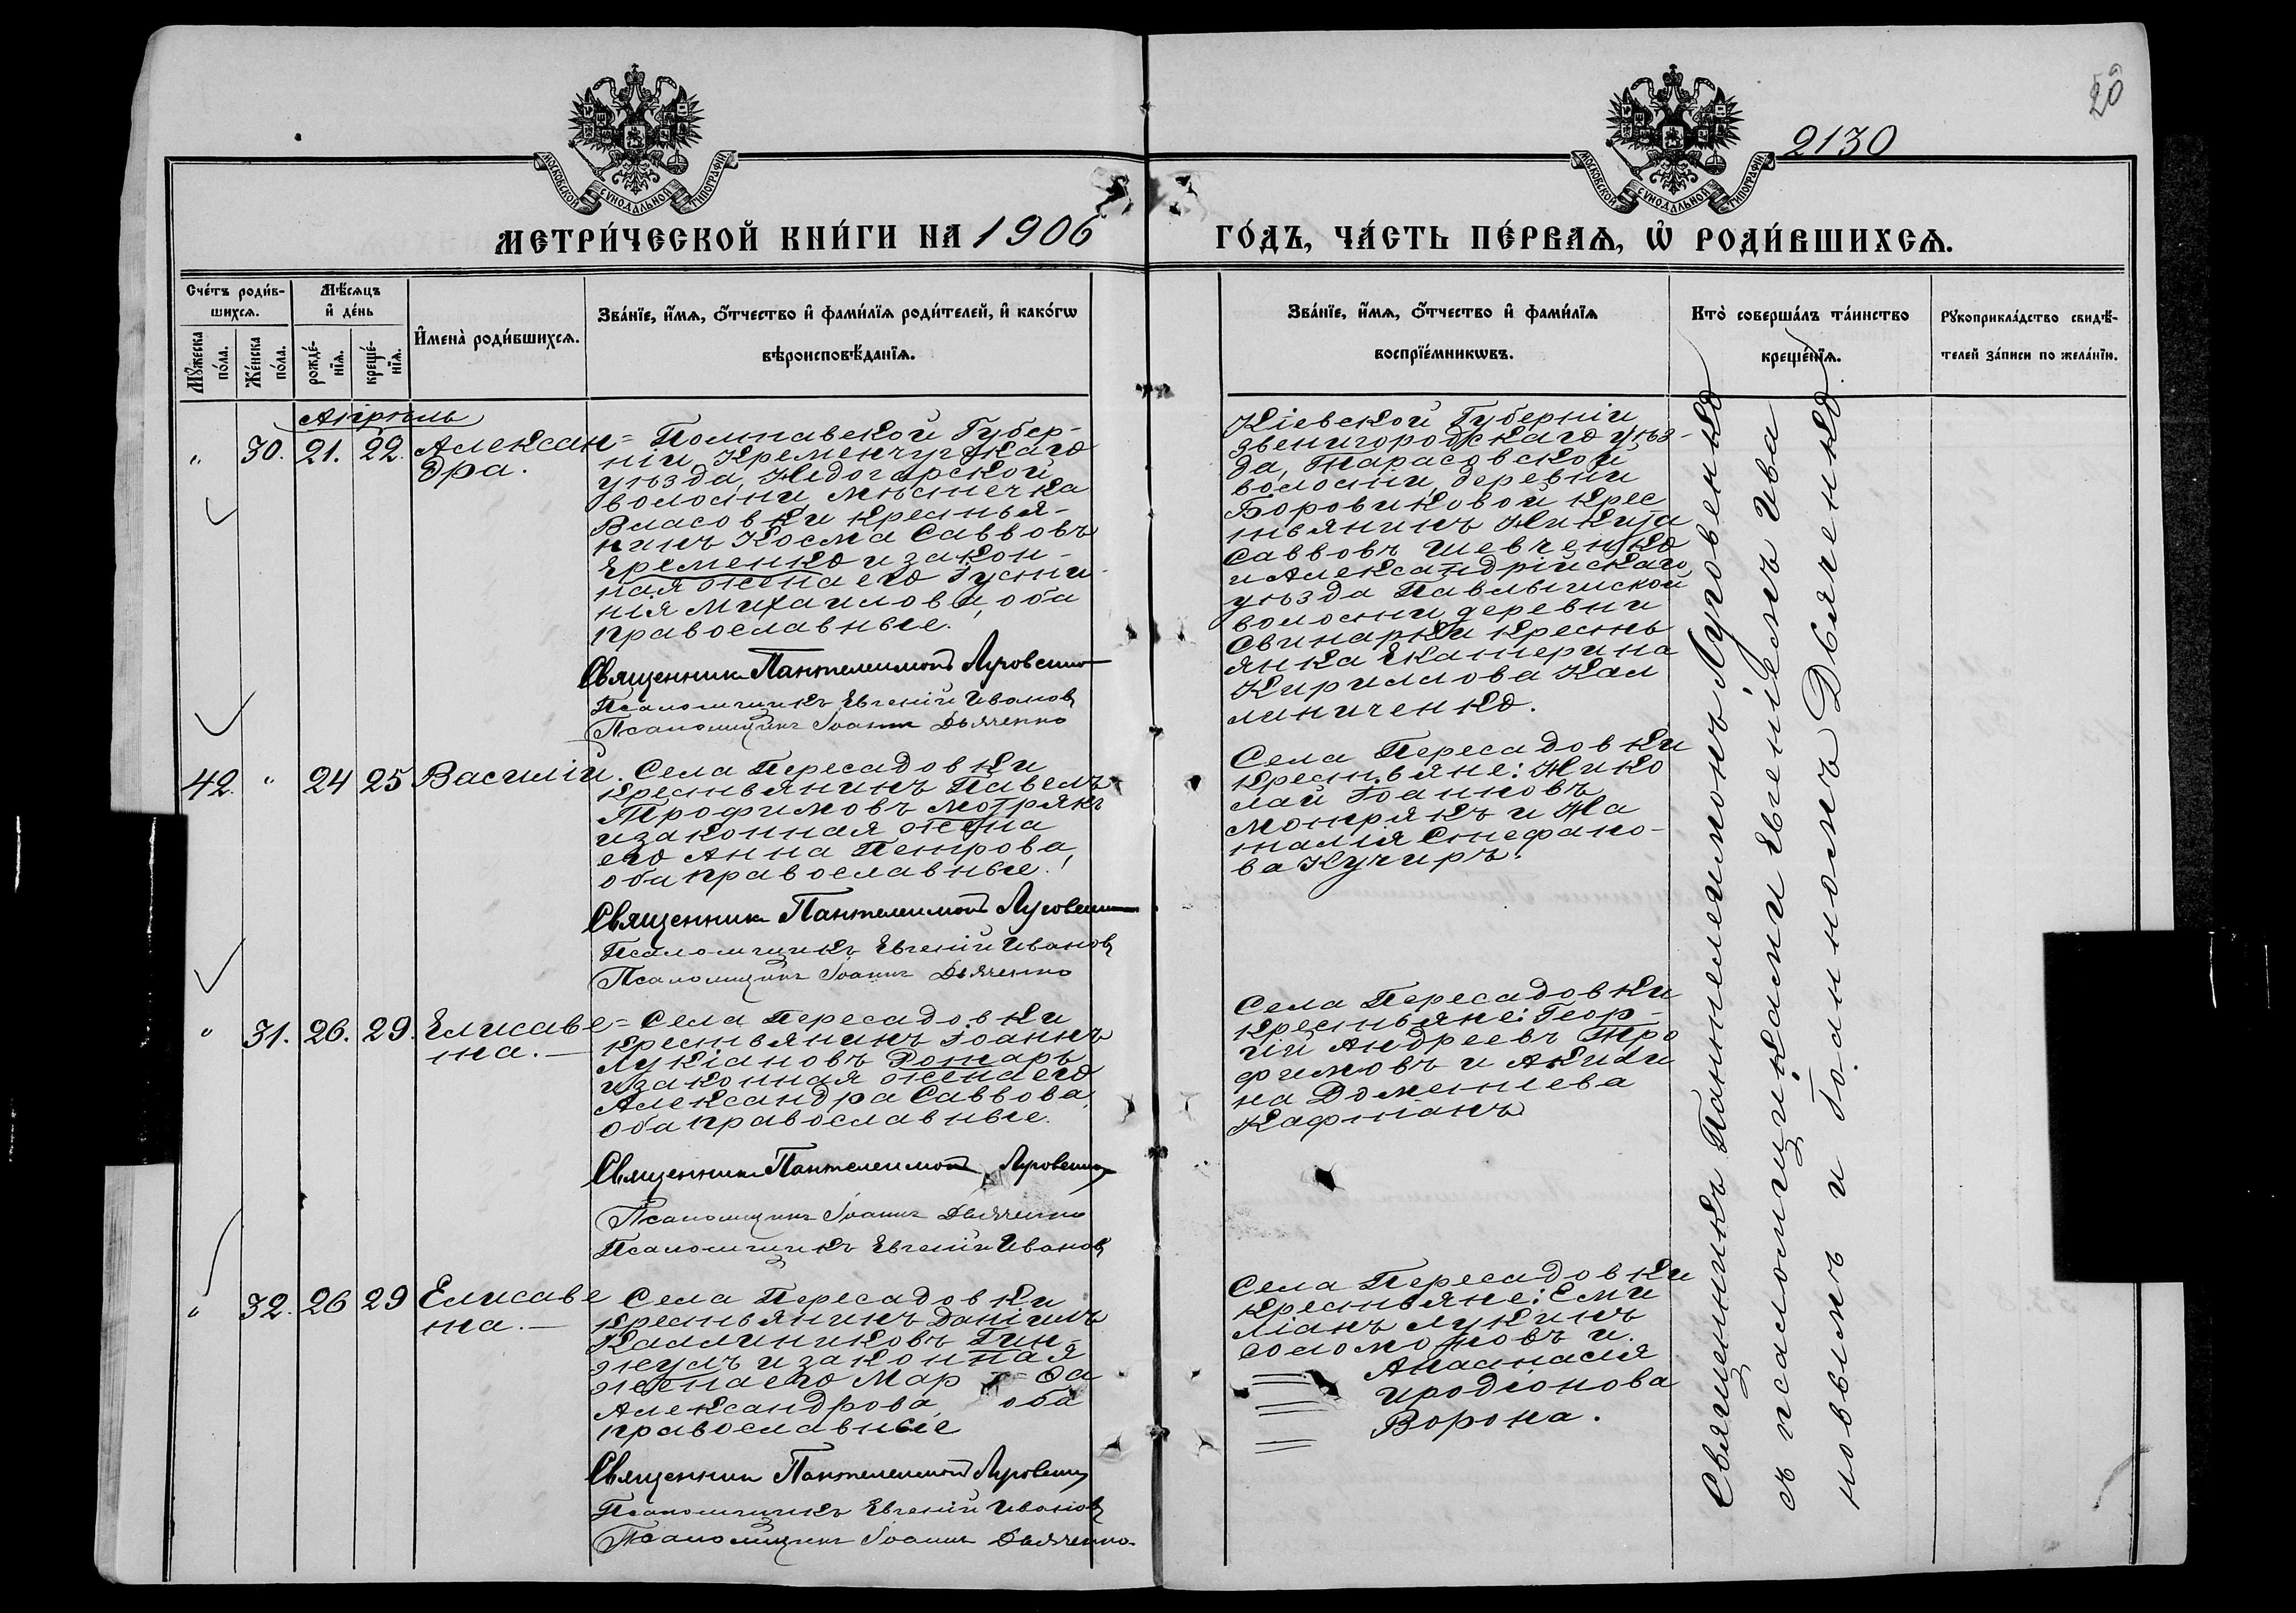 20
2130
МОСКОВСКОЙ СѴНОДАЛЬНОЙ ТИПОГРАФІИ
МОСКОВСКОЙ СѴНОДАЛЬНОЙ ТИПОГРАФІИ
МЕТРИ́ЧЕСКОЙ КНИ́ГИ НА 1906
ГО́ДЪ, ЧА́СТЬ ПЕ́РВАѦ, Ѽ РОДИ́ВШИХСѦ.
Сче́тъ роди́в-
шихсѧ.
Мꙋ́жеска
по́ла.
Же́нска
по́ла.
Мѣ́сѧцъ
и҆ де́нь
рожде́-
нїѧ.
креще́-
нїѧ.
И҆мена̀ роди́вшихсѧ.
Зва́нїе, и҆́мѧ, ѻ҆́тчество и҆ фами́лїѧ роди́телей, и҆ како́гѡ
вѣроисповѣ́данїѧ.
Зва́нїе, и҆́мѧ, ѻ҆́тчество и҆ фами́лїѧ
воспрїе́мникѡвъ.
Кто̀ соверша́лъ та́инство
креще́нїѧ.
Рꙋкоприкла́дство свидѣ́-
телей за́писи по жела́нїю.
Апрѣль
" 30. 21. 22. Алексан=
дра.
Полтавской Губер-
ніи Кременчугскаго
уѣзда, Недогарской
волости мѣстечка
Власовки крестья-
нинъ Косма Саввовъ
Яременко и закон-
ная жена его Густи-
нія Михаилова, оба
православные.
Священникъ Пантелеимонъ Луговенко
Псаломщикъ Евгеній Ивановъ
Псаломщикъ Іоаннъ Дьяченко
Кіевской Губерніи
Звенигородскаго уѣз-
да, Тарасовской
волости, деревни
Боровиковой крес
тьянинъ Никита
Саввовъ Шевченко
и Александрійскаго
уѣзда Павлышской
волости, деревни
Свинарки кресть
янка Екатерина
Кириллова Кал
линиченко.
42. " 24 25 Василій.
Села Пересадовки
крестьянинъ Павелъ
Трофимовъ Мотрякъ
и законная жена
его Анна Петрова,
оба православные.
Священникъ Пантелеимонъ Луговенко
Псаломщикъ Евгеній Ивановъ
Псаломщикъ Іоаннъ Дьяченко
Села Пересадовки
крестьяне: Нико
лай Іоанновъ
Мотрякъ и На
талія Стефано-
ва Кучиръ.
" 31. 26. 29. Елисаве=
та.
Села Пересадовки
крестьянинъ Іоаннъ
Лукіановъ Ротарь
и законная жена его
Александра Саввова,
оба православные.
Священникъ Пантелеимонъ Луговенко
Псаломщикъ Іоаннъ Дьяченко
Псаломщикъ Евгеній Ивановъ
Села Пересадовки
крестьяне: Геор-
гій Андреевъ Тро
фимовъ и Акили
на Дометіева
Кафтанъ
" 32. 26 29 Елисаве
та.
Села Пересадовки
крестьянинъ Даніилъ
Каллиниковъ Гин-
жулъ и законная
жена его Мар=ѳа
Александрова, оба
православные
Священникъ Пантелеимонъ Луговенко
Псаломщикъ Евгеній Ивановъ
Псаломщикъ Іоаннъ Дьяченко
Села Пересадовки
крестьяне: Еми
ліанъ Лукинъ
Соломоновъ и
Анастасія
Иродіонова
Ворона.
Священникъ Пантелеимонъ Луговенко
съ псаломщиками Евгеніемъ Ива
новымъ и Іоанномъ Дьяченко.